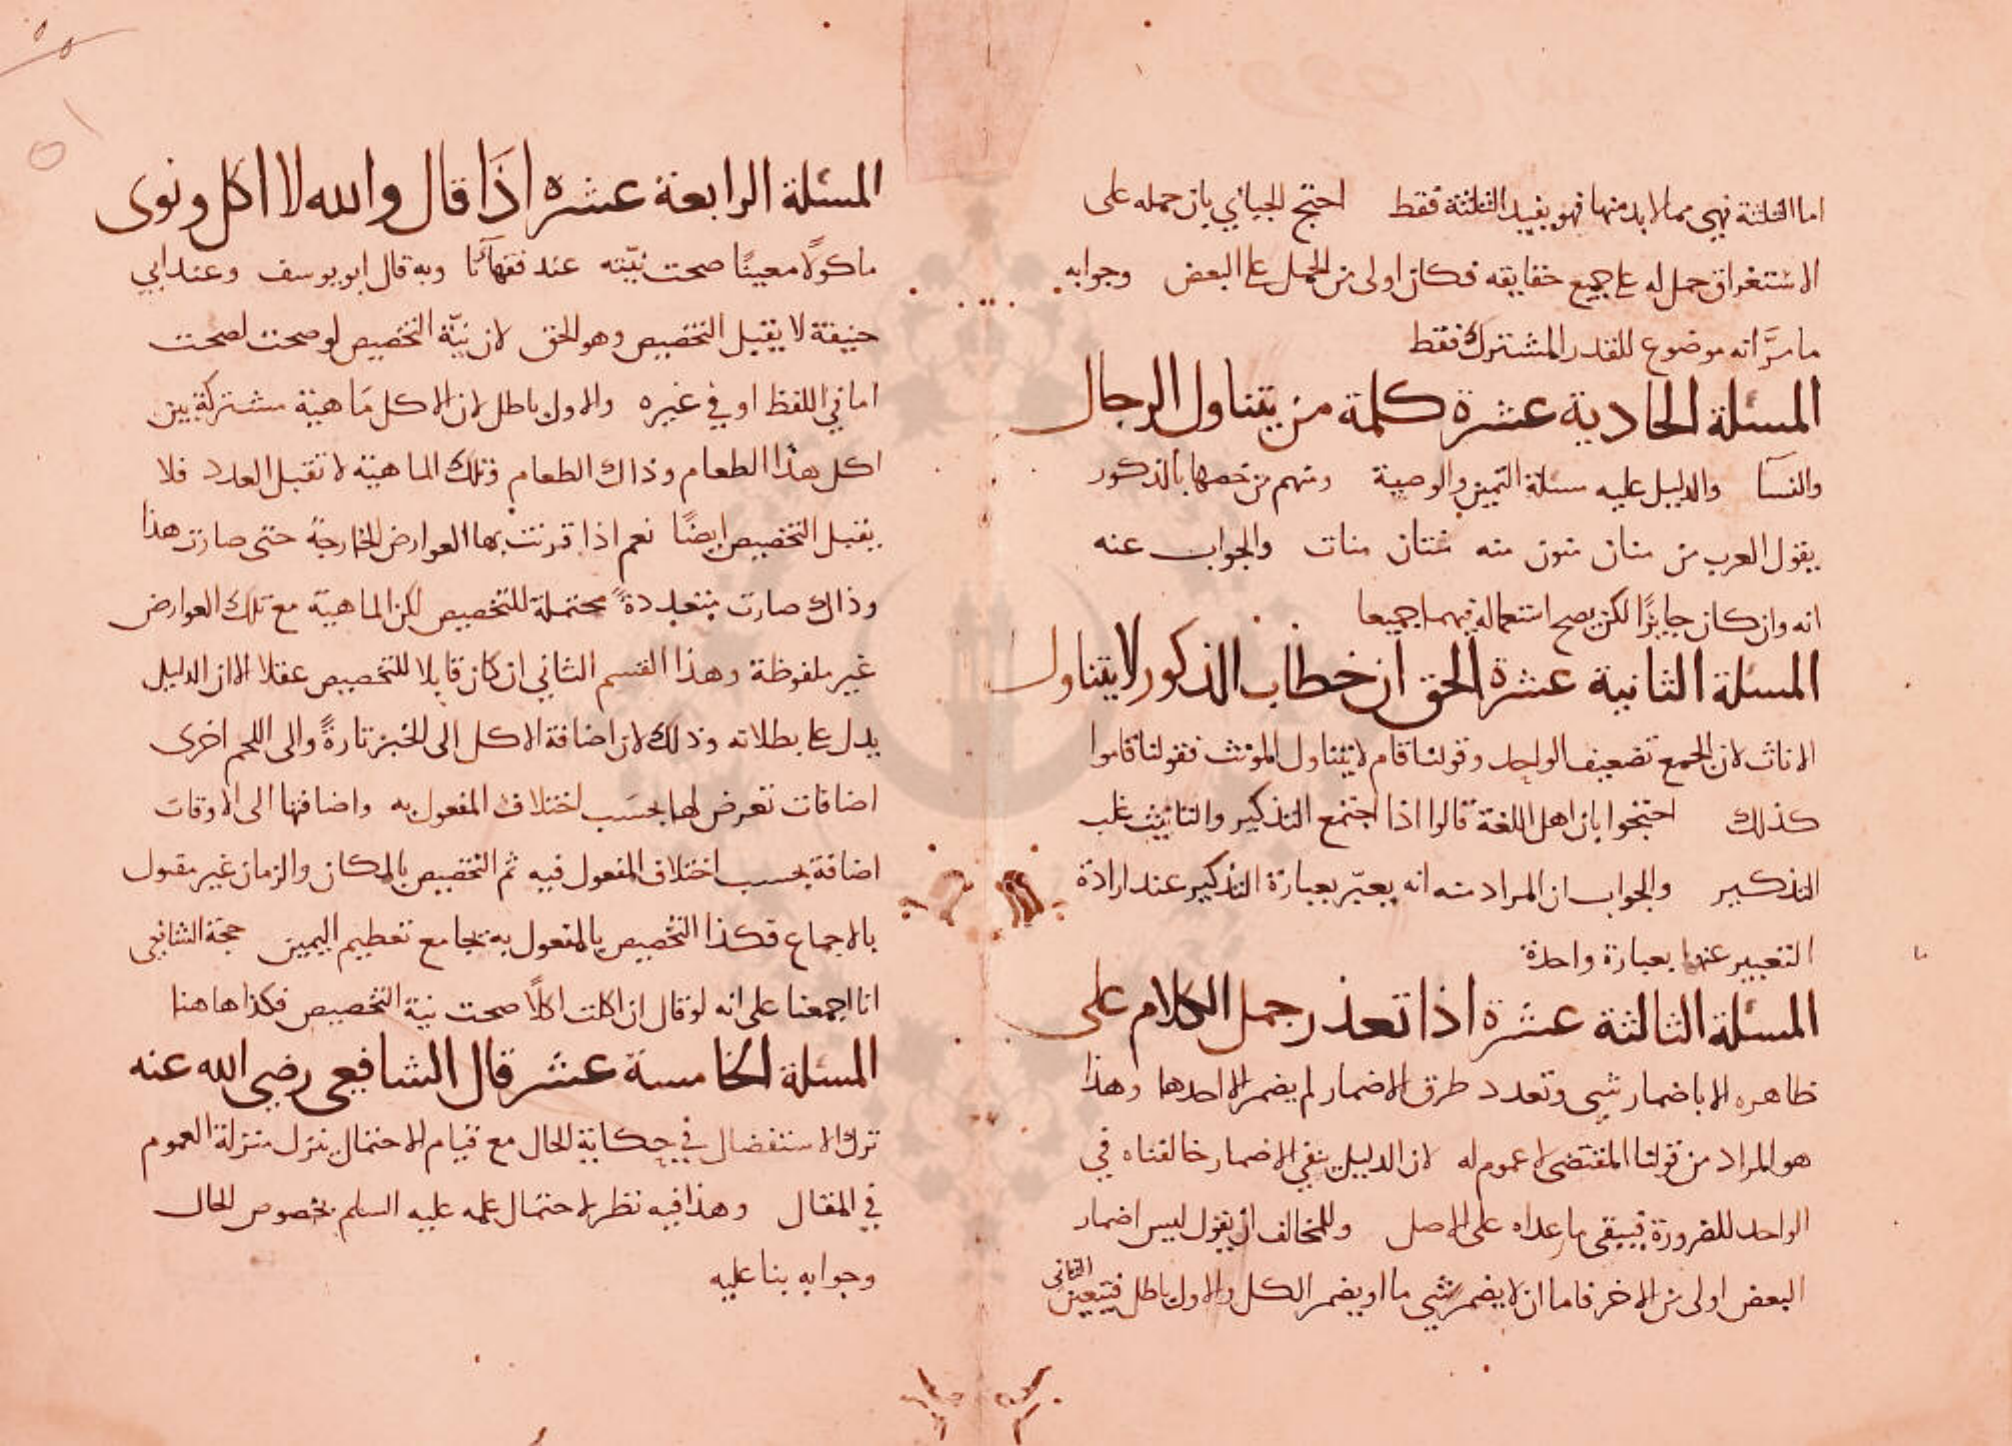 اما الثلثة فهى مما لا بد منها فهو يفيد الثلثة فقط احتج الجبائي بان حمله على
الاستغراق حمل له على جميع حقايقه فكان اولى من الحمل على البعض وجوابه
ما مرَّ انه موضوع للقدر المشترك فقط
المسئلة الحادية عشرة كلمة من يتناول الرجال
والنسآ والدليل عليه مسئلة اليمين والوصية ومنهم من خصها بالذكور
يقول العرب من منان منون منه منتان منات والجواب عنه
انه وان كان جايزًا لكن يصح استعماله فيهما جميعا
المسئلة الثانية عشرة الحق ان خطاب الذكور لا يتناول
الاناث لان الجمع تضعيف الواحد وقولنا قام لا يتناول المونث فقولنا قاموا
كذلك احتجوا بان اهل اللغة قالوا اذا اجتمع التذكير والتانيث غلب
التذكير والجواب ان المراد منه انه يعبّر بعبارة التذكير عند ارادة
التعبير عنهما بعبارة واحدة
المسئلة الثالثة عشرة اذا تعذر حمل الكلام على
ظاهره الا باضمار شي وتعدد طرق الاضمار لم يضمر الا احدها وهذا
هو المراد من قولنا المقتضى لا عموم له لان الدليل ينفي الاضمار خالفناه في
الواحد للضرورة فيبقى ما عداه على الاصل وللمخالف ان يقول ليس اضمار
البعض اولى من الاخر فاما ان لا يضمر شي ما او يضمر الكل والاول باطل فيتعين الثانى
المسئلة الرابعة عشره اذَا قال والله لا اكل ونوى
ماكولًا معينًا صحت نيّته عند فقهآئنا وبه قال ابو يوسف وعند ابي
حنيفة لا يقبل التخصيص وهو الحق لان نيّة التخصيص لو صحت لصحت
اما في اللفظ او في غيره والاول باطل لان الاكل مَاهية مشتركة بين
اكل هذا الطعام وذاك الطعام وتلك الماهية لا تقبل العدد فلا
يقبل التخصيص ايضًا نعم اذا قرنت بها العوارض الخارجة حتى صارت هذا
وذاك صارت متعددةً محتملة للتخصيص لكن الماهية مع تلك العوارض
غير ملفوظة وهذا القسم الثاني ان كان قابلا للتخصيص عقلا الا ان الدليل
يدل على بطلانه وذلك لان اضافة الاكل الى الخبز تارةً والى اللحم اخرى
اضافات تعرض لها بحسَب اختلاف المفعول به واضافتها الى الاوقات
اضافة بحسب اختلاف المفعول فيه ثم التخصيص بالمكان والزمان غير مقبول
بالاجماع فكذا التخصيص بالمفعول به بجامع تعظيم اليمين حجة الشافعى
انا اجمعنا على انه لو قال ان اكلت اكلًا صحت نية التخصيص فكذا هاهنا
المسئلة الخامسة عشر قال الشافعي رضي الله عنه
ترك الاستفصال في حكاية الحال مع قيام الاحتمال ينزل منزلة العموم
في المقال وهذا فيه نظر لاحتمال علمه عليه السلم بخصوص الحال
وجوابه بنا عليه